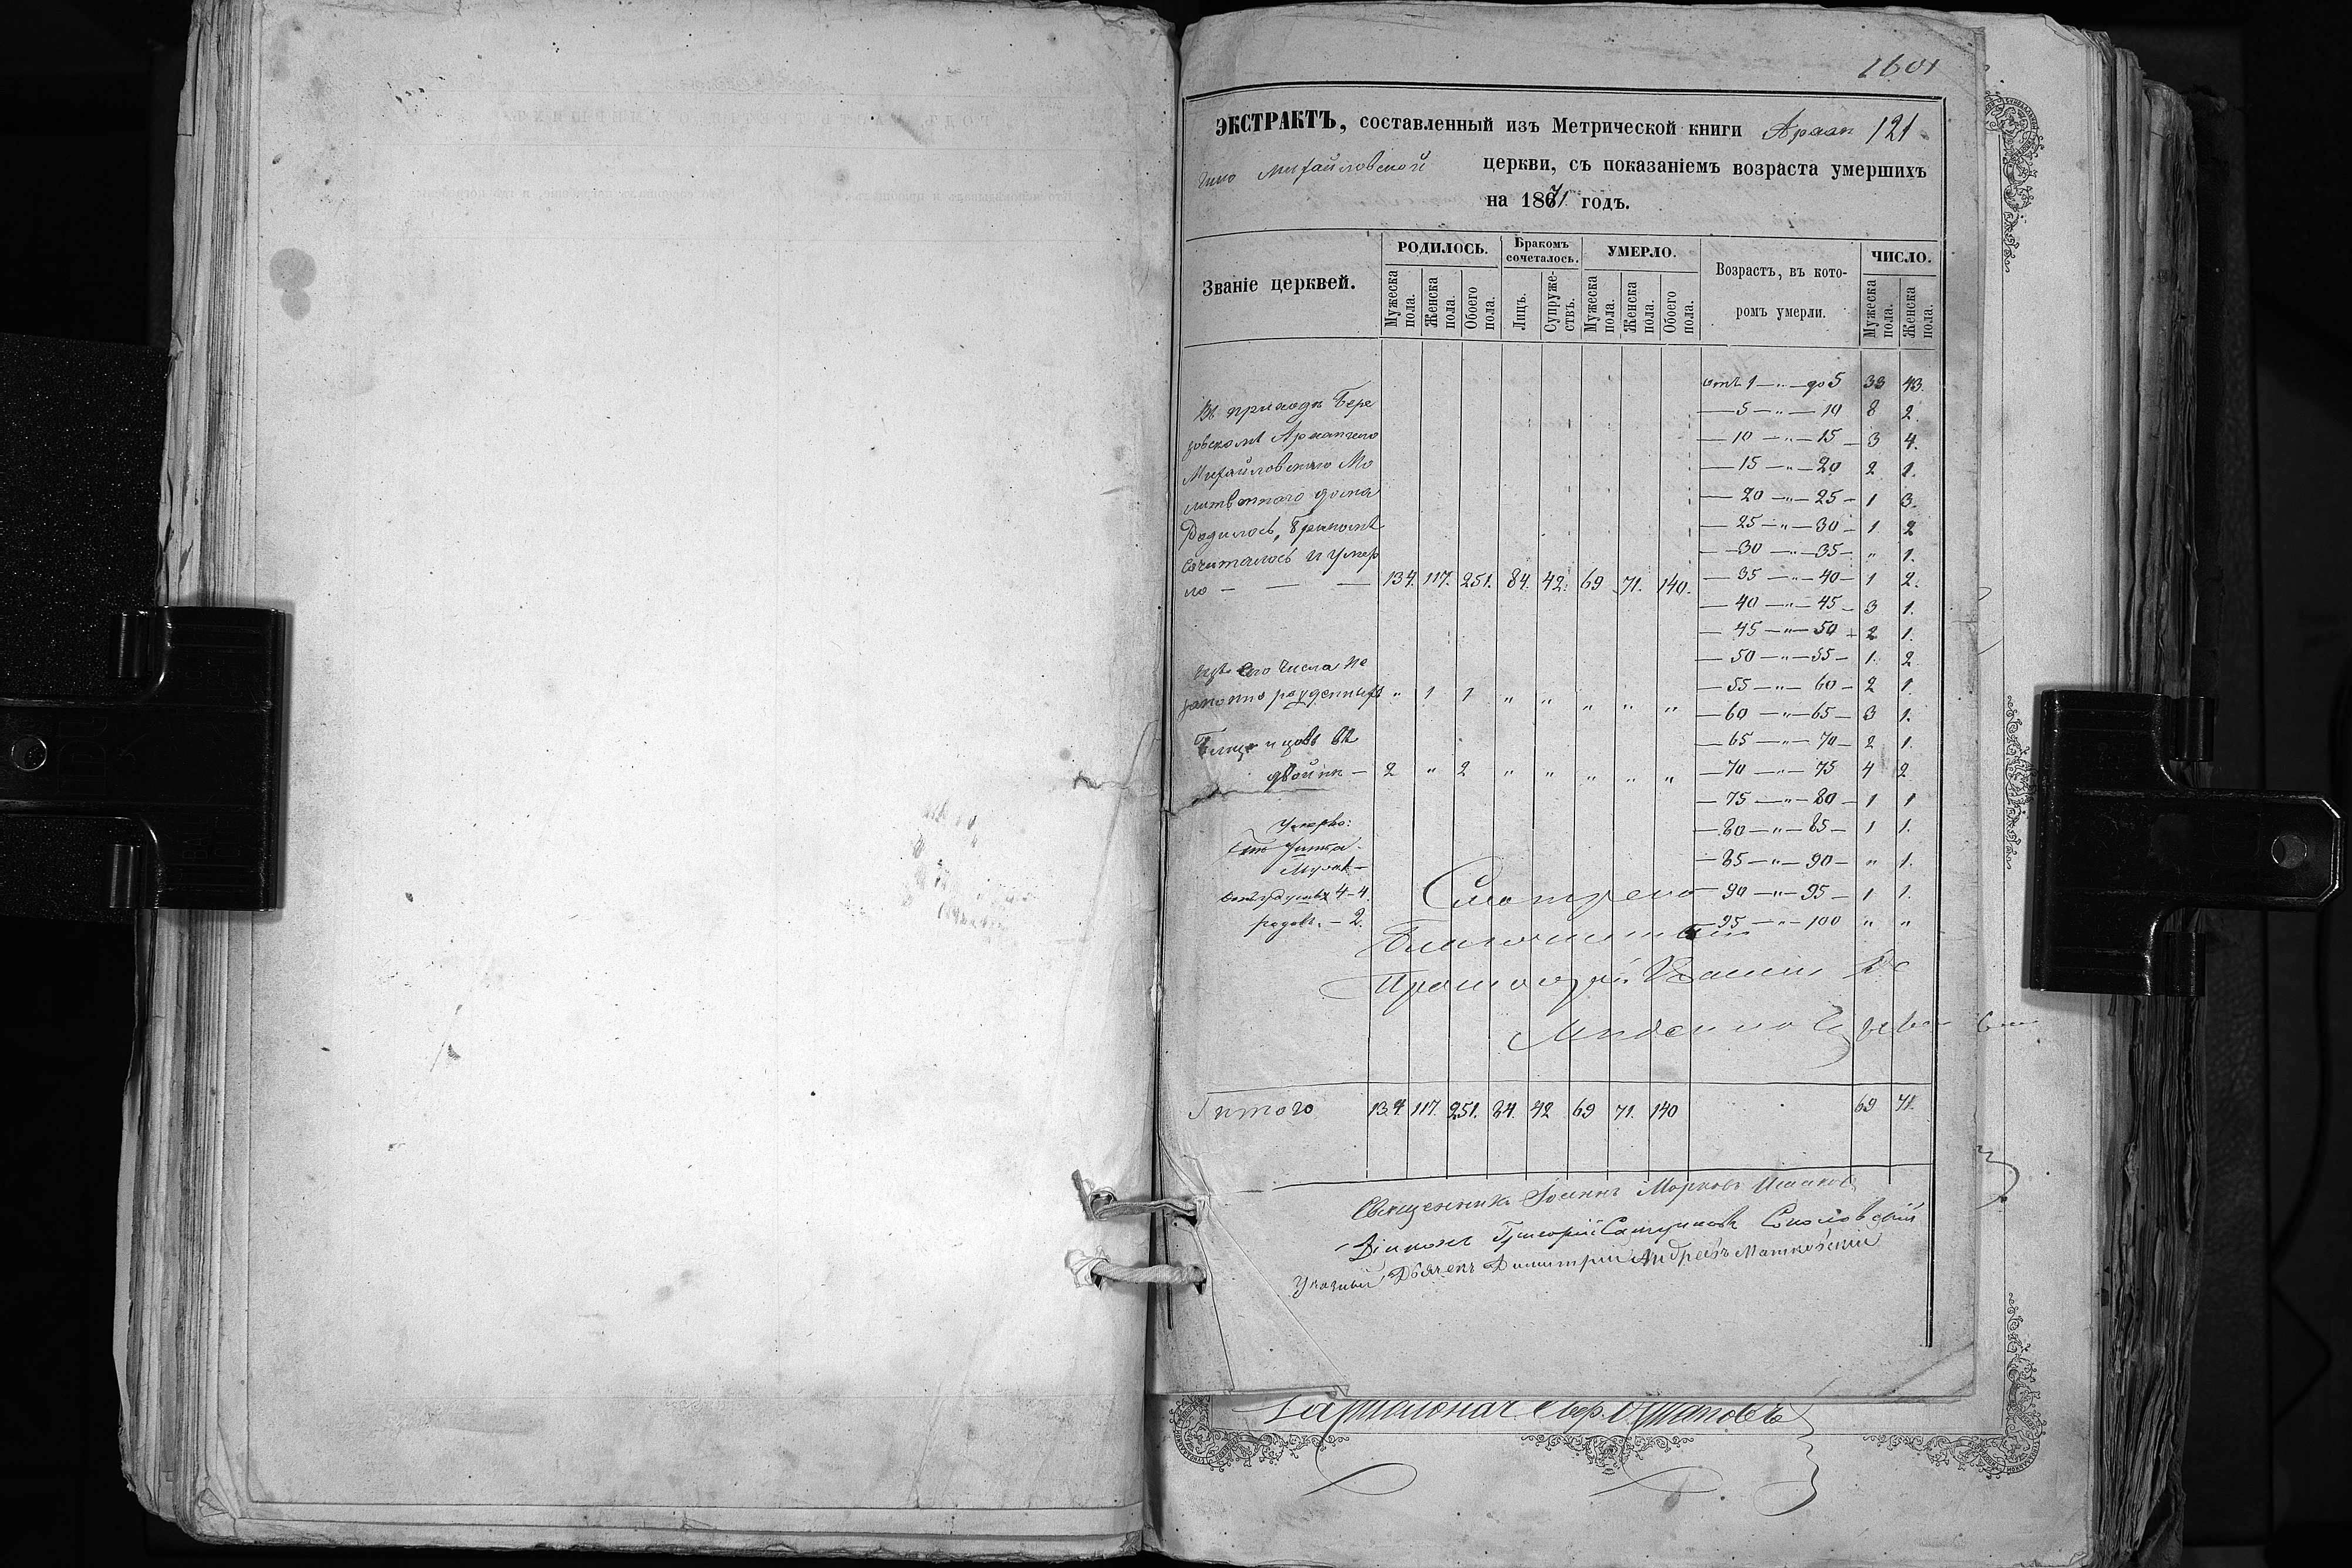 1601
ЭКСТРАКТЪ, составленный изъ Метрической книги Архан 121
гело Михайловской церкви, съ показаніемъ возраста умершихъ
на 1871 годъ.
Званіе церквей.
РОДИЛОСЬ.
Мужеска пола.
Женска пола.
Обоего пола.
Бракомъ сочеталось.
Лицъ.
Супружествъ.
УМЕРЛО.
Мужеска пола.
Женска пола.
Обоего пола.
Возрастъ, въ которомъ умерли.
ЧИСЛО.
Мужеска пола.
Женска пола.
Въ приходѣ Бере
зовскомъ Архангело
Михайловскаго Мо
литвеннаго дома
Родилось, бракомъ
сочиталось и умер
ло — — — 134. 117. 251. 84. 42. 69 71. 140.
Изъ сего числа не
законно рожденныхъ " 1 1 " " " " "
Близнецовъ въ
двойнѣ — 2 " 2 " " " " "
Умерло:
4—4.
родовъ. — 2.
отъ 1 — " — до 5 33 43.
— 5 — " — 10 8 2.
— 10 — " — 15 — 3 4.
— 15 — " — 20 2 1.
— 20 — " — 25 — 1 3.
— 25 — " — 30 — 1. 2
— 30 — " — 35 — " 1.
— 35 — " — 40 — 1 2.
— 40 — " — 45 — 3 1.
— 45 — " — 50 — 2 1.
— 50 — " — 55 — 1. 2
— 55 — " — 60 — 2 1.
— 60 — " — 65 — 3 1.
— 65 — " — 70 — 2 1.
— 70 — " — 75 4 2
— 75 — " — 80 — 1 1
— 80 — " — 85 — 1 1.
— 85 — " — 90 — " 1.
— 90 — " — 95 — 1 1.
— 95 — " — 100 " "
Благочинный
Протоіерей
Итого 134. 117. 251. 84. 42 69 71. 140 69 71.
Священникъ Іоаннъ Марковъ
Діаконъ Григорій Соколовскій
Указный Дьячекъ Димитрій Андреевъ Матковскій